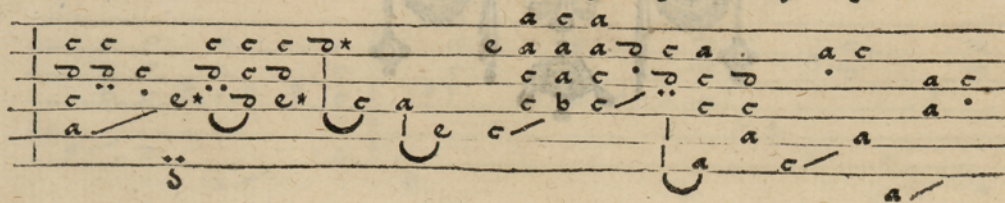 a c a
c c c c c d* e a a a d c a a c
d d c d c d c a c d c d a c
c e* d e* c a c b c c c a
a e c a a
a c
a